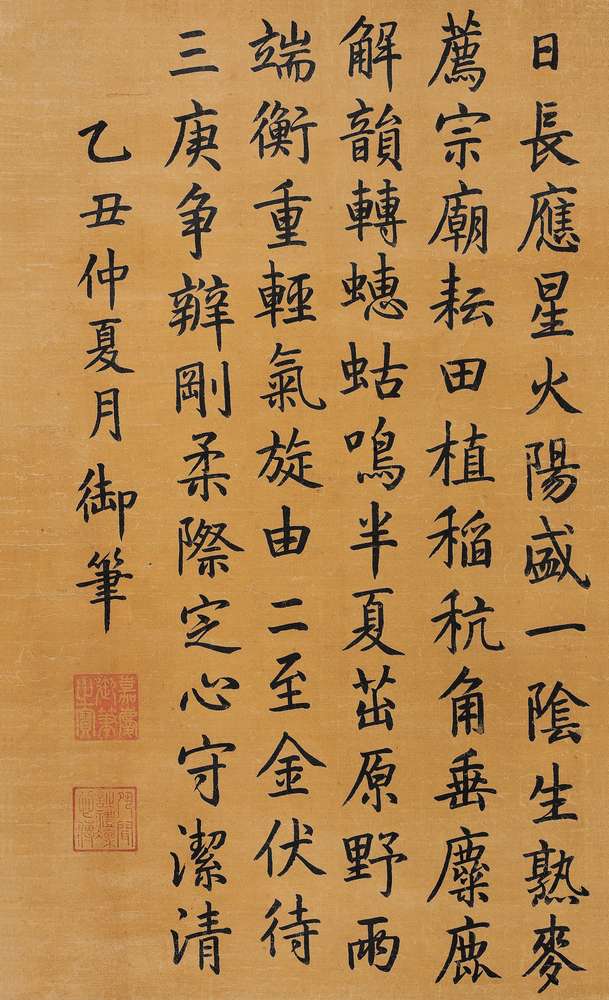 日長應星火陽盛一陰生熟麥
薦宗廟耘田植稲秔角垂麋鹿
解韻轉蟪蛄鳴半夏茁原野兩
端衡重輕氣旋由二至金伏待
三庚争辨剛柔際定心守潔清
乙丑仲夏月御筆
嘉慶御筆之寶